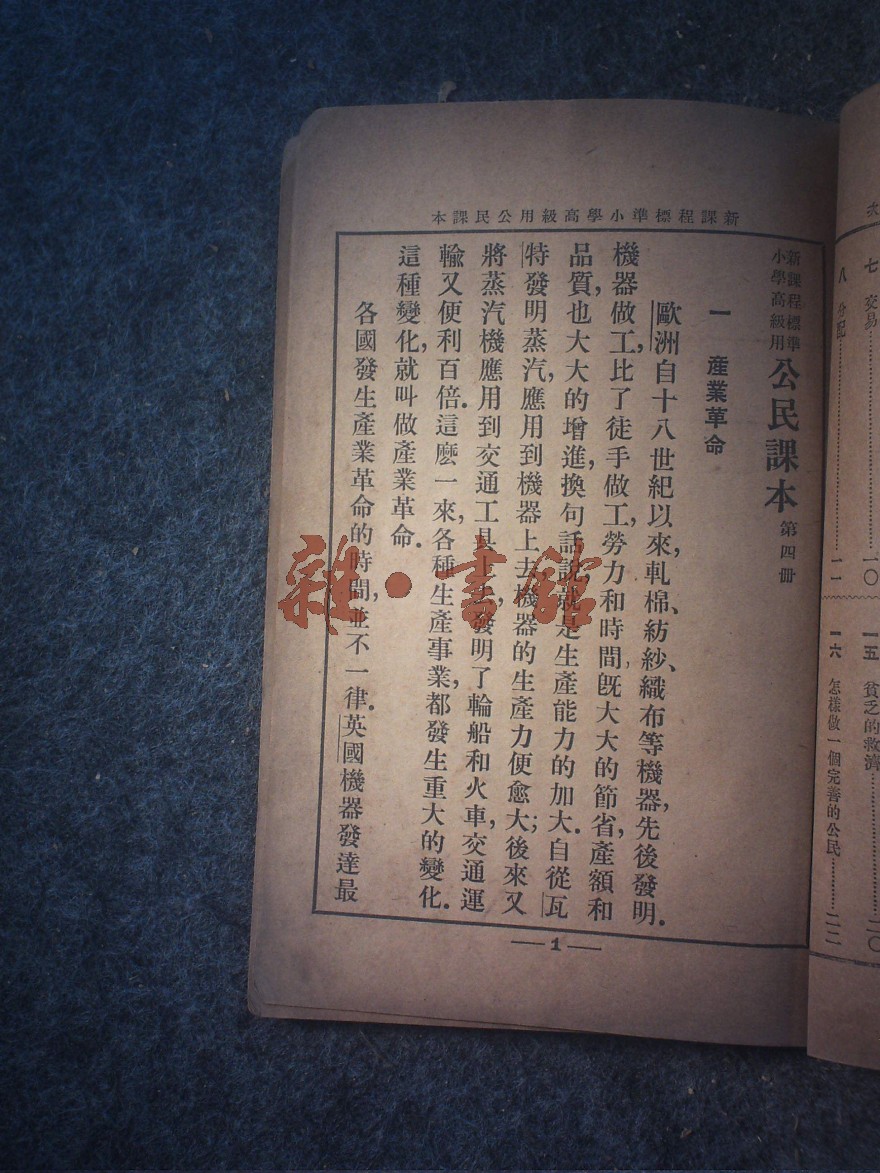 新課程標準小學高級用公民課本
新課程標準
小學高級用
公民課本 第四冊
一 產業革命
歐洲自十八世紀以來,軋棉、紡紗、織布等機器,先後發明.
機器做工,比了徒手做工,勞力和時間,旣大大的節省,產額和
品質,也大大的增進,換句話說,就是生產能力的加大.自從瓦
特發明蒸汽,應用到機器上去,機器的生產力便愈大;後來又
將蒸汽機應用到交通工具上去,發明了輪船和火車,交通運
輸又便利百倍.這麽一來,各種生產事業,都發生重大的變化.
這種變化,就叫做產業革命.
各國發生產業革命的時間,並不一律.英國機器發達最
1
七 交易 一〇
八 分配 一一
一五 貧乏的救濟 二〇
一六 怎樣做一個完善的公民 二二
雜·書館